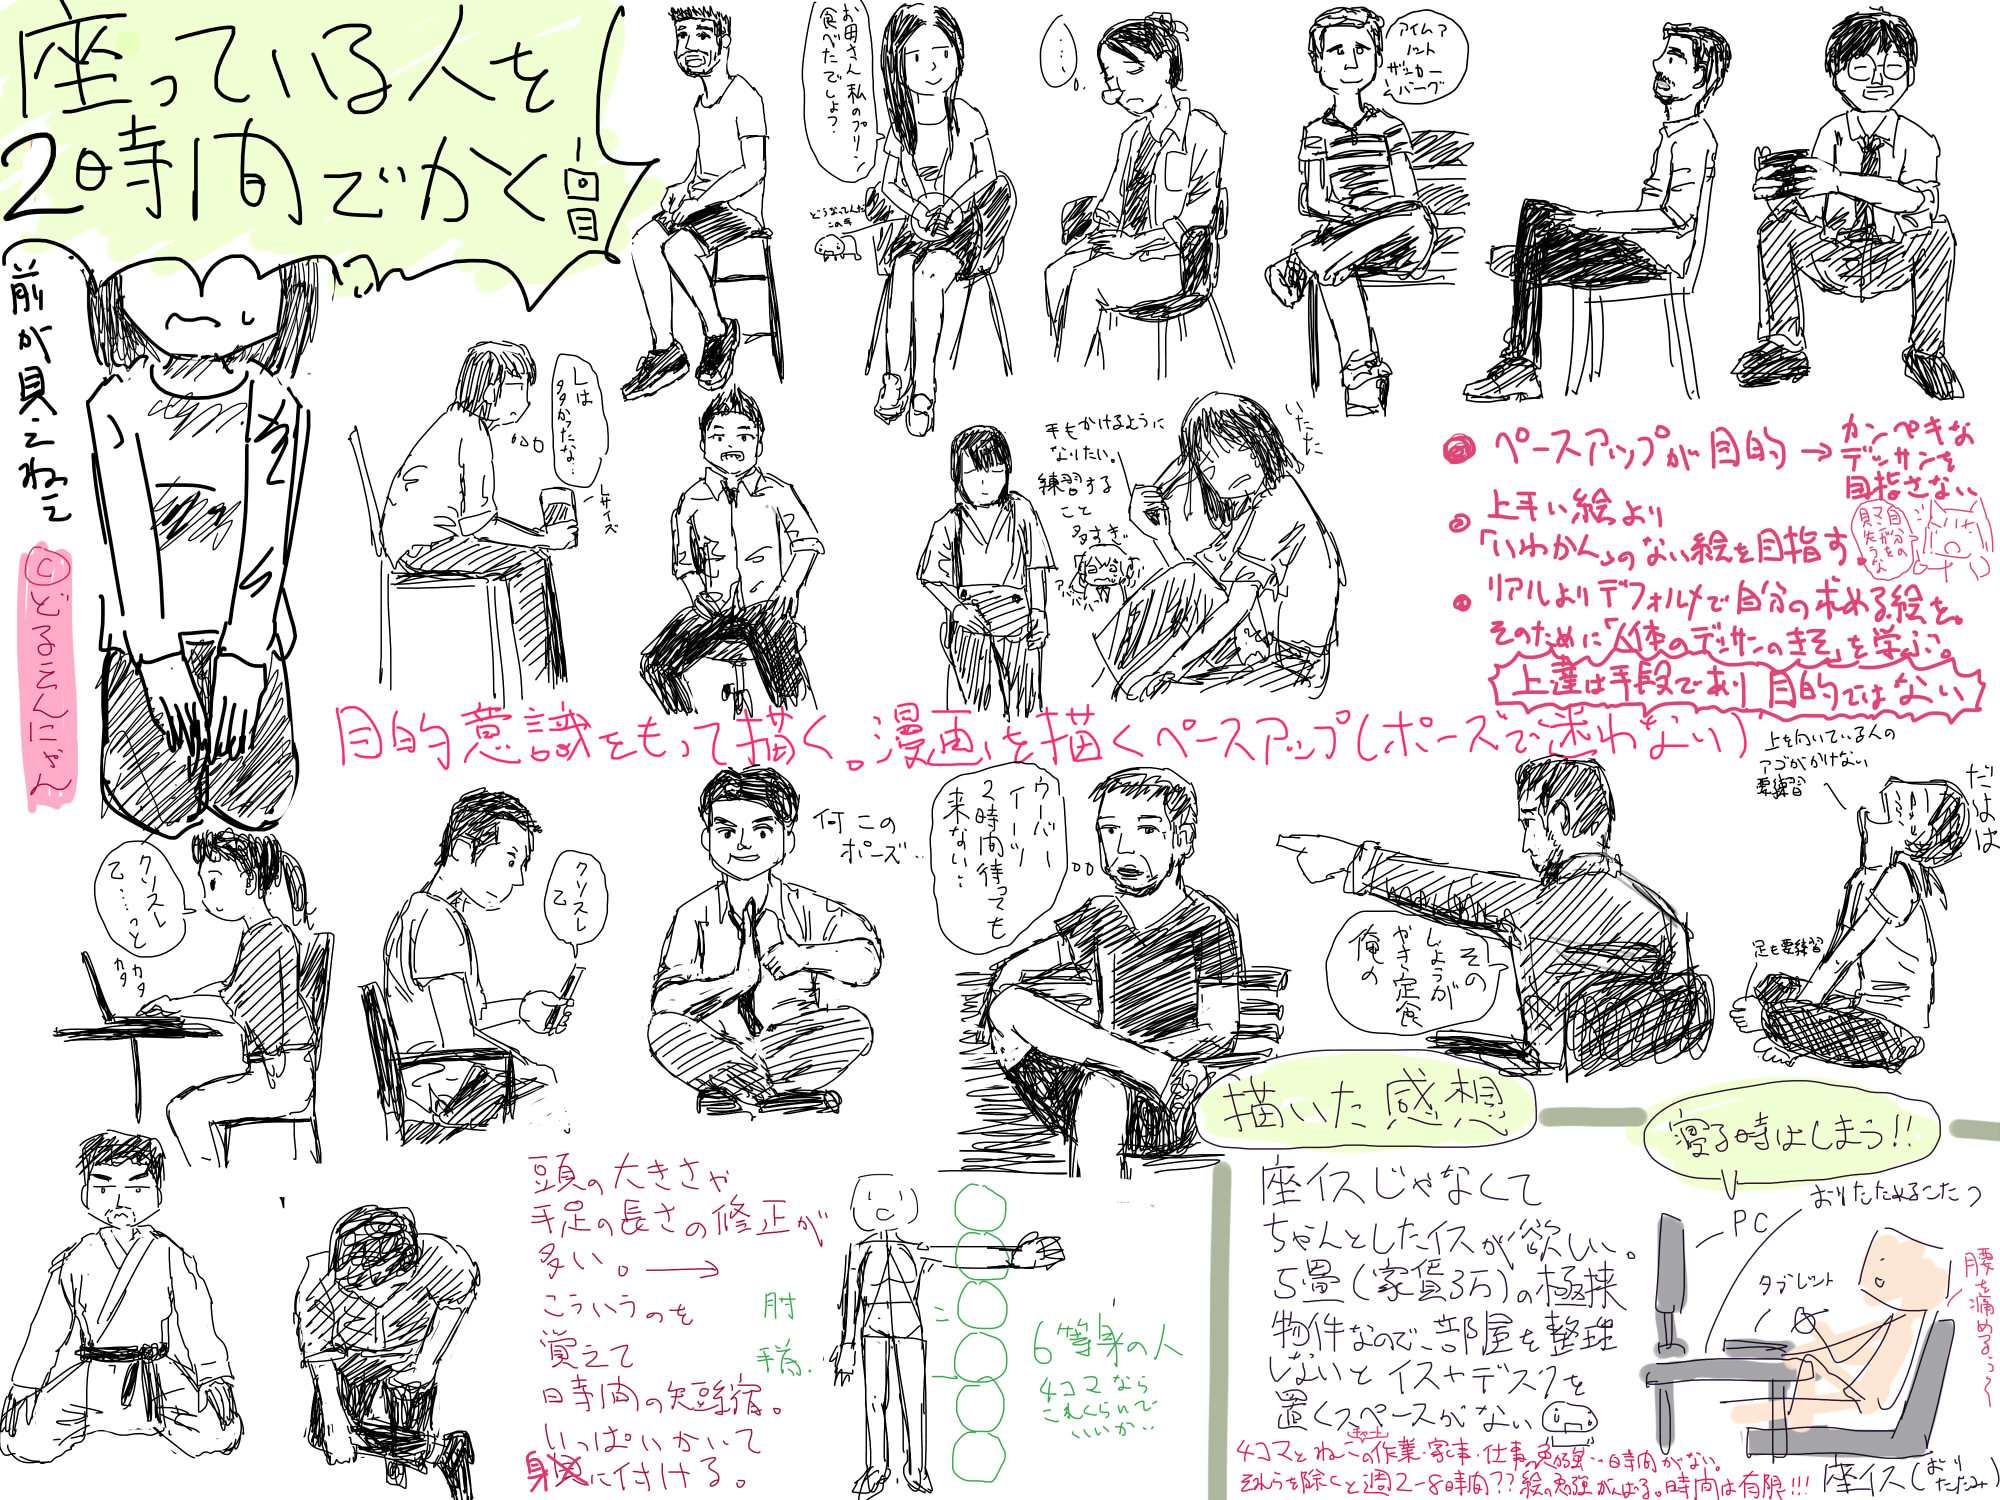 座っている人を
2時間でかく
前が見えねえ
©どるこんにゃん
お母さん私のプリン
食べたでしょう?
どうなってんだ
この手
・・・。
アイム ア
ノット
ザッカー
バーグ
Lは
タタかったな…
Lサイズ
手もかけるように
なりたい。
練習する
こと
多すぎ
いたた
ペースアップが目的→カンペキな
デッサンを
目指さない
上手い絵より
「いわかん」のない絵を目指す。
自分の
リアルよりデフォルメで自分の求める絵を。
そのために「人体のデッサンのきそ」を学ぶ。
上達は手段であり 目的ではない
目的意識をもって描く。漫画を描くペースアップ(ポーズで迷わない)
クソスレ
乙……っと
カタ
カタ
クソスレ
乙
何このポーズ…
ウーバー
イーツ
2時間待っても
来ない…
その
しょうが
やき定食
俺の
上を向いている人の
アゴがかけない
要練習
だよは
足も要練習
頭の大きさや
手足の長さの修正が
多い。→
こういうのを
覚えて
時間の短縮。
いっぱいかいて
身に付ける。
肘
6等身の人
4コマなら
これくらいで
いいか…
描いた感想
座イスじゃなくて
ちゃんとしたイスが欲しい。
5畳(家賃3万)の極狭
物件なので、部屋を整理
しないと イス+デスクを
置くスペースがない
寝る時はしまう!!
おりたためるこたつ
PC
タブレット
腰を痛める
座イス(おりたたみ)
4コマとねこの作業・家事・仕事の勉強…時間がない。
それらを除くと週2〜8時間??絵の勉強がんばる。時間は有限!!!